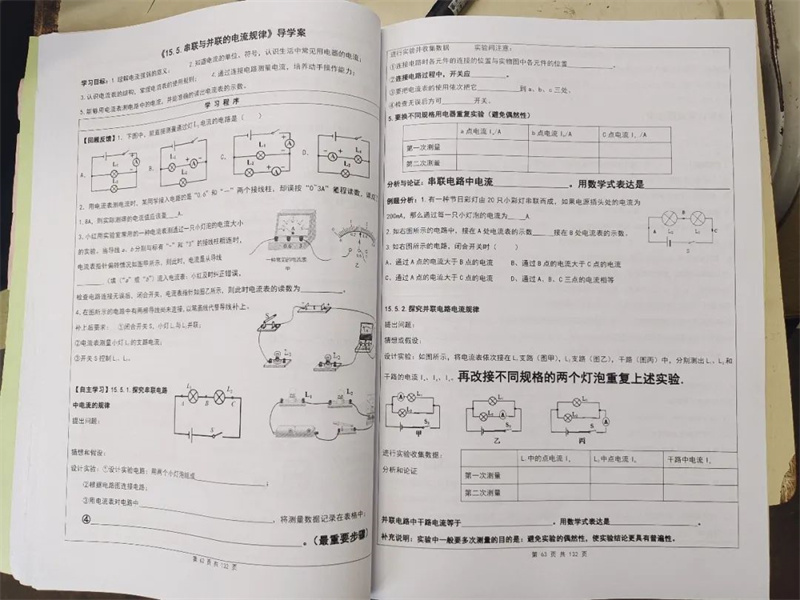 《15.5.串联与并联的电流规律》导学案
学习目标：1.理解电流强弱的意义； 2.知道电流的单位、符号，认识生活中常见用电器的电流；
3.认识电流表的结构，掌握电流表的使用规则； 4.通过连接电路测量电流，培养动手操作能力；
5.能够用电流表测电路中的电流，并能准确的读出电流表的示数。
学 习 程 序
【回顾反馈】1、下图中，能直接测量通过灯L₁电流的电路是（ ）
A、 B、 C、 D、
2、用电流表测电流时，某同学接入电路的是“0.6”和“－”两个接线柱，却误按“0~3A”量程读数，读成
1.8A，则实际测得的电流值应该是____A
3、小红用实验室常用的一种电流表测通过一只小灯泡的电流大小
的实验，当导线a、b分别与标有“-”和“3”的接线柱相连时，
电流表指针偏转情况如图甲所示，则此时，电流是从导线
______（填“a”或“b”）流入电流表；小红及时纠正错误，
检查电路连接无误后，闭合开关，电流表指针如图乙所示，则此时电流表的读数为________。
4、在图所示的电路中有两根导线尚未连接，以笔画线代替导线补上。
补上后要求： ①闭合开关S，小灯L₁与L₂并联；
②电流表测量小灯L₁的支路电流；
③开关S控制L₁、L₂。
【自主学习】15.5.1.探究串联电路
中电流的规律
提出问题：
猜想和假设：
设计实验：①设计实验电路：用两个小灯泡组成________
②根据电路图连接电路，
③用电流表对电路中________
④________，将测量数据记录在表格中；
________。（最重要步骤）
第 62 页 共 132 页
进行实验并收集数据 实验间注意：
①连接电路时各元件的连接的位置与实物图中各元件的位置________
②连接电路过程中，开关应________。
③要把电流表的使用依次把它________到a、b、c三处。
④检查无误后方可________开关。
5.要换不同规格用电器重复实验（避免偶然性）
a点电流 Iₐ/A b点电流 I_b/A C点电流 I꜀/A
第一次测量
第二次测量
分析与论证：串联电路中电流________。用数学式表达是________
例题分析：1.有一种节日彩灯由20只小彩灯串联而成，如果电源插头处的电流为
200mA，那么通过每一只小灯泡的电流为____A
2、如右图所示的电路中，接在A处电流表的示数____接在B处电流表的示数。
3、如右图所示的电路，闭合开关时（ ）
A、通过A点的电流大于B点的电流 B、通过B点的电流大于C点的电流
C、通过A点的电流大于C点的电流 D、通过A、B、C三点的电流相等
15.5.2.探究并联电路电流规律
提出问题：
猜想或假设：
设计实验：如图所示，将电流表依次接在L₁支路（图甲），L₂支路（图乙），干路（图丙）中，分别测出L₁、L₂和
干路的电流I₁、I₂、I，再改接不同规格的两个灯泡重复上述实验.
甲 乙 丙
进行实验收集数据：
分析和论证
L₁中的点电流 I₁ L₂中点电流 I₂ 干路中电流 I
第一次测量
第二次测量
并联电路中干路电流等于________，用数学式表达是________。
补充说明：实验中一般要多次测量的目的是：避免实验的偶然性，使实验结论更具有普遍性。
第 63 页 共 132 页